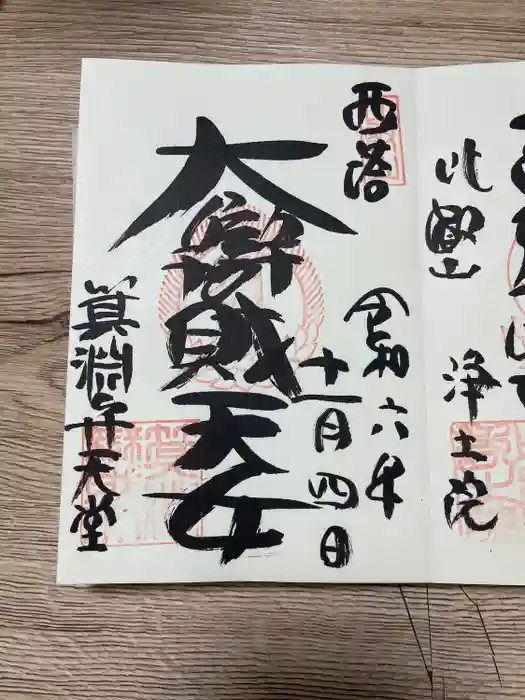 比叡山 浄土院
西塔
令和六年
十一月四日
大辯財天女
箕淵弁天堂